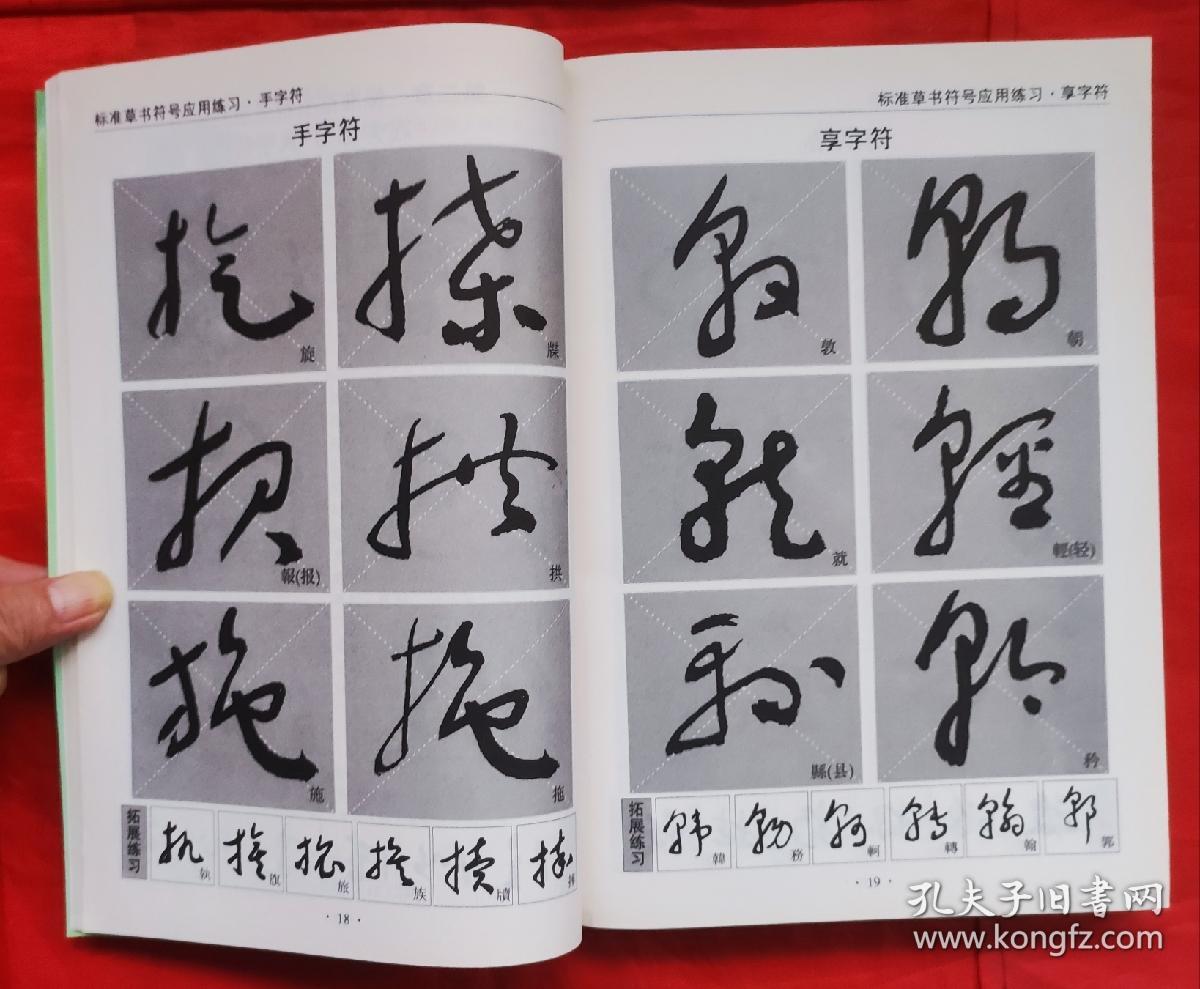 标准草书符号应用练习·手字符
手字符
旋
牒
報(报)
拱
施
拖
拓展练习
執
旗
旅
族
牘
·18·
标准草书符号应用练习·享字符
享字符
敦
朝
就
輕(轻)
縣(县)
矜
拓展练习
韓
務
軻
轉
翰
郭
·19·
孔夫子旧书网
www.kongfz.com